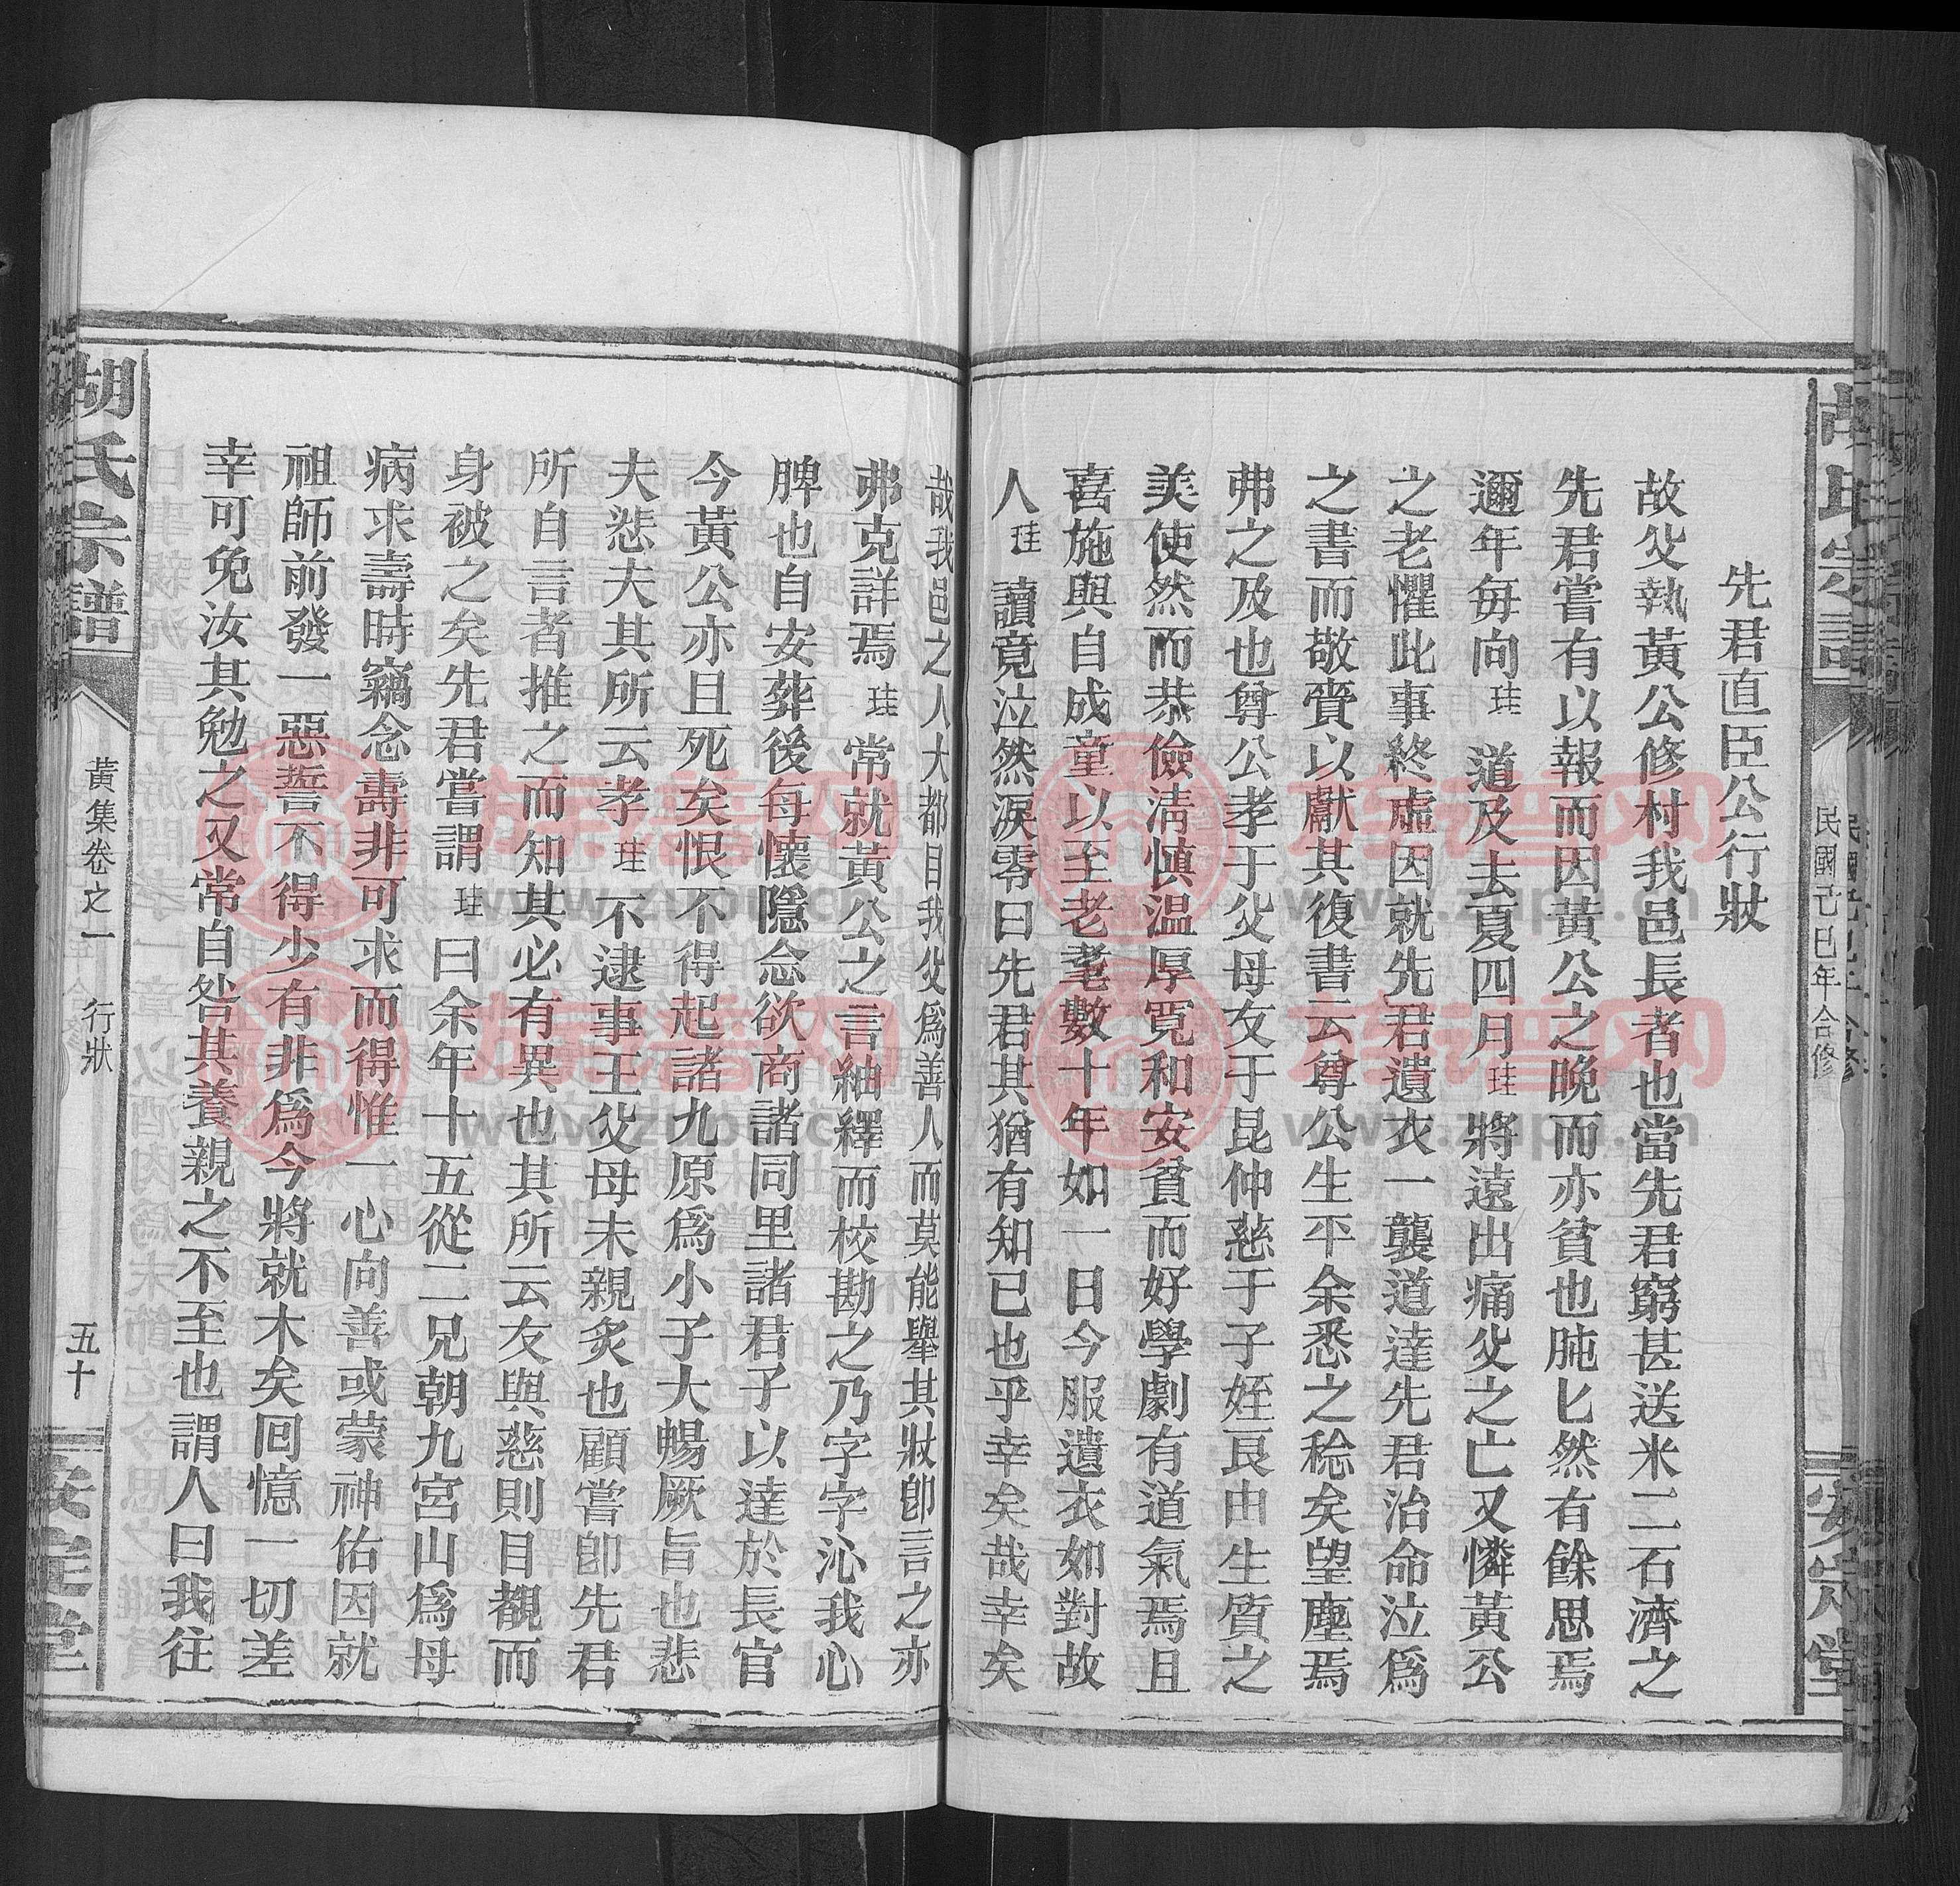 胡氏宗譜
民國己巳年合修
安定堂
先君直臣公行狀
故父執黃公修村我邑長者也當先君窮甚送米二石濟之
先君嘗有以報而因黃公之晚而亦貧也肫匕然有餘思焉
邇年每向珪道及去夏四月珪將遠出痛父之亡又憐黃公
之老懼此事終虛因就先君遺衣一襲道達先君治命泣爲
之書而敬賫以獻其復書云尊公生平余悉之稔矣望塵焉
弗之及也尊公孝于父母友于昆仲慈于子姪艮由生質之
美使然而恭儉淸慎温厚寬和安貧而好學劇有道氣焉且
喜施與自成童以至老耄數十年如一日今服遺衣如對故
人珪讀竟泣然淚零曰先君其猶有知已也乎幸矣哉幸矣
哉我邑之人大都目我父爲善人而莫能舉其狀卽言之亦
弗克詳焉珪常就黃公之言紬繹而校勘之乃字字沁我心
脾也自安葬後每懷隱念欲商諸同里諸君子以達於長官
今黃公亦且死矣恨不得起諸九原爲小子大暢厥旨也悲
夫悲夫其所云孝珪不逮事王父母未親炙也顧嘗卽先君
所自言者推之而知其必有異也其所云友與慈則目覩而
身被之矣先君嘗謂珪曰余年十五從二兄朝九宮山爲母
病求壽時竊念壽非可求而得惟一心向善或蒙神佑因就
祖師前發一惡誓不得少有非爲今將就木矣囘憶一切差
幸可免汝其勉之又常自咎其養親之不至也謂人曰我往
胡氏宗譜
黃集卷之一
行狀
五十
安定堂
族譜网
www.zupu.cn
族譜网
www.zupu.cn
族譜网
www.zupu.cn
族譜网
www.zupu.cn